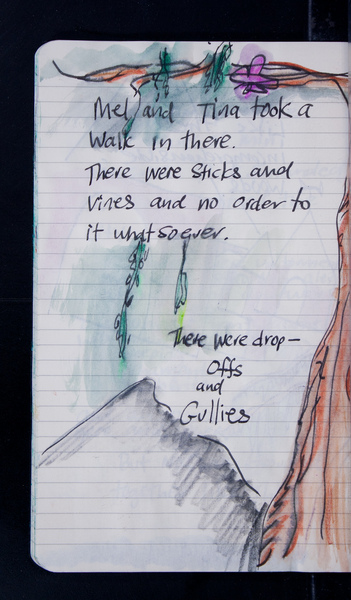 Mel and Tina took a
Walk in there.
There were sticks and
vines and no order to
it whatsoever.
There were drop-
Offs
and
Gullies